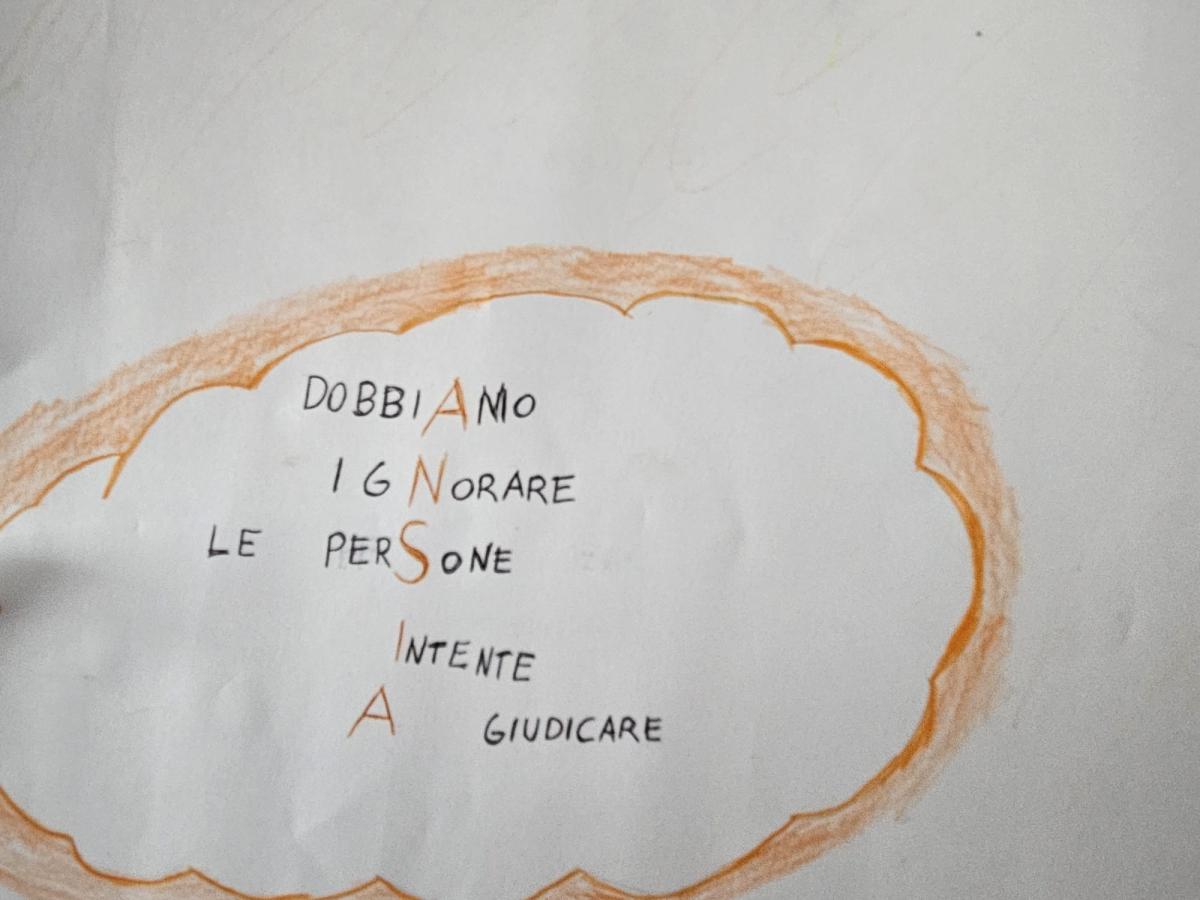 DOBBIAMO
IGNORARE
LE PERSONE
INTENTE
A GIUDICARE